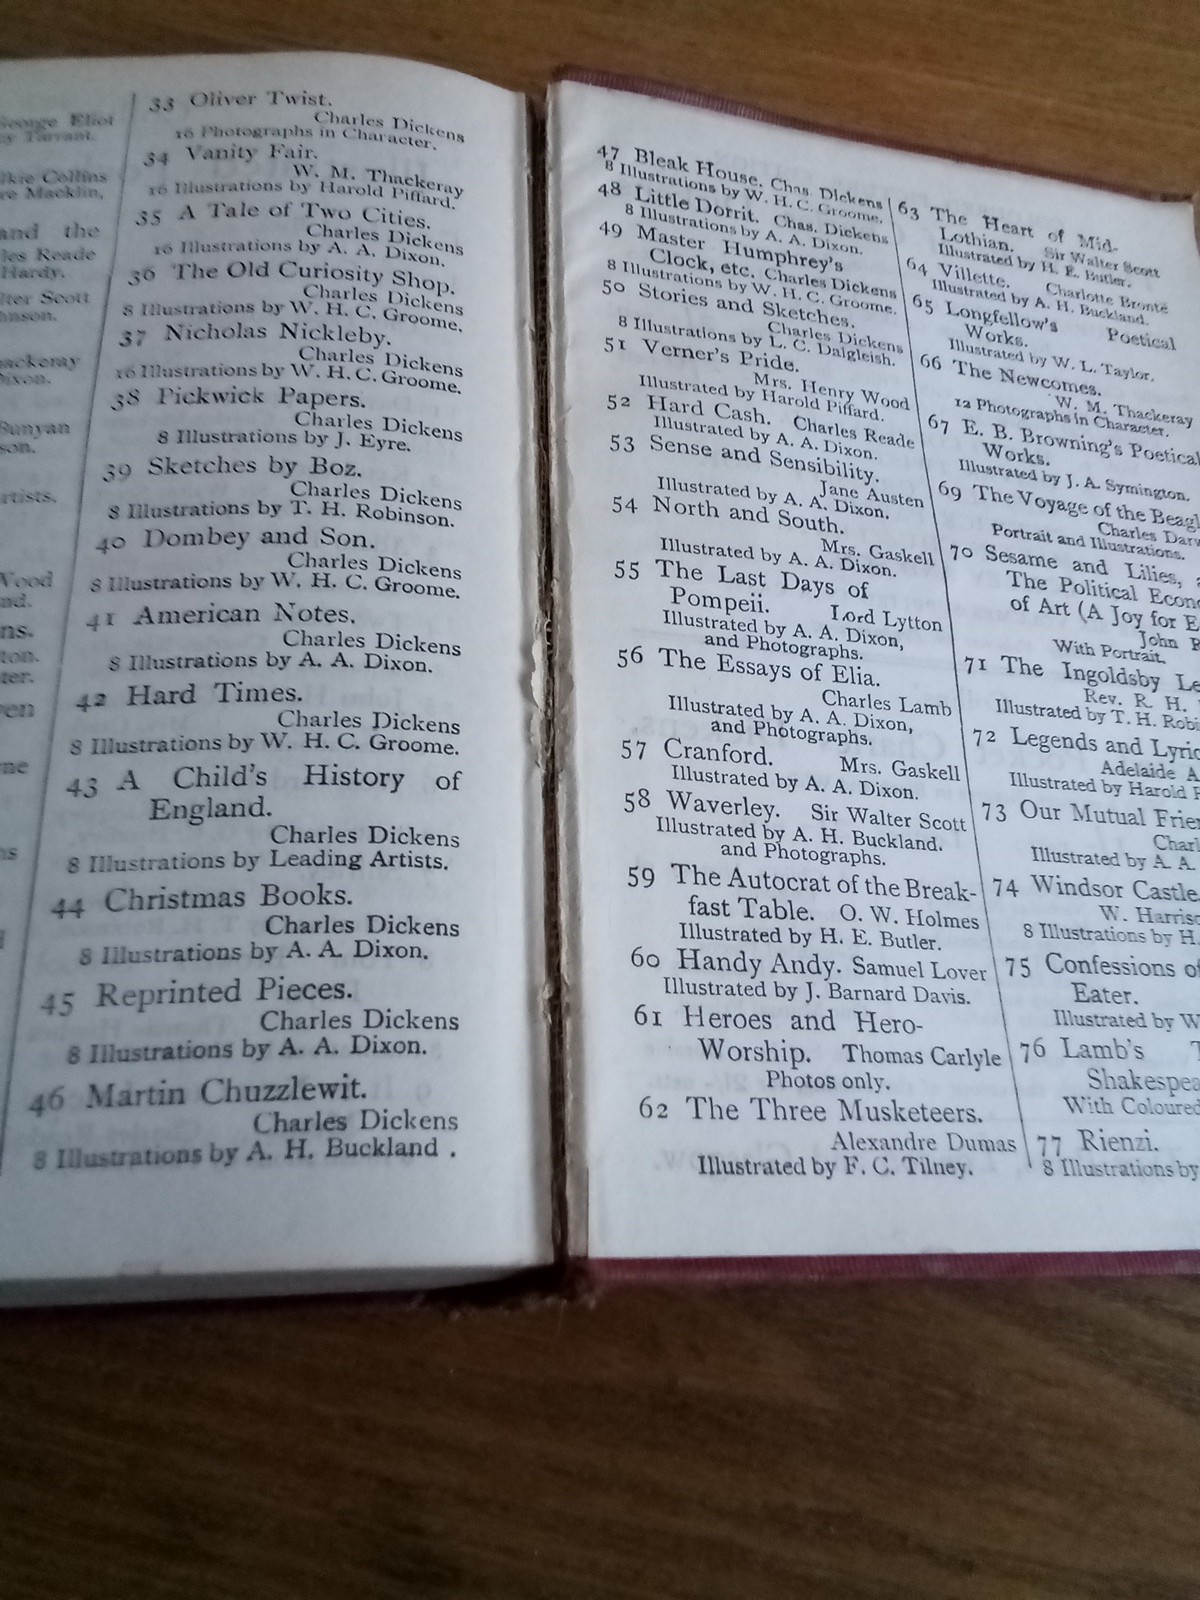 George Eliot
Tarrant.
Collins
Macklin,
and the
Reade
Hardy.
Scott
Bunyan
Wood
33 Oliver Twist.
Charles Dickens
16 Photographs in Character.
34 Vanity Fair.
W. M. Thackeray
16 Illustrations by Harold Piffard.
35 A Tale of Two Cities.
Charles Dickens
16 Illustrations by A. A. Dixon.
36 The Old Curiosity Shop.
Charles Dickens
8 Illustrations by W. H. C. Groome.
37 Nicholas Nickleby.
Charles Dickens
16 Illustrations by W. H. C. Groome.
38 Pickwick Papers.
Charles Dickens
8 Illustrations by J. Eyre.
39 Sketches by Boz.
Charles Dickens
8 Illustrations by T. H. Robinson.
40 Dombey and Son.
Charles Dickens
8 Illustrations by W. H. C. Groome.
41 American Notes.
Charles Dickens
8 Illustrations by A. A. Dixon.
42 Hard Times.
Charles Dickens
8 Illustrations by W. H. C. Groome.
43 A Child's History of
England.
Charles Dickens
8 Illustrations by Leading Artists.
44 Christmas Books.
Charles Dickens
8 Illustrations by A. A. Dixon.
45 Reprinted Pieces.
Charles Dickens
8 Illustrations by A. A. Dixon.
46 Martin Chuzzlewit.
Charles Dickens
8 Illustrations by A. H. Buckland .
47 Bleak House. Chas. Dickens
8 Illustrations by W. H. C. Groome.
48 Little Dorrit. Chas. Dickens
8 Illustrations by A. A. Dixon.
49 Master Humphrey's
Clock, etc. Charles Dickens
8 Illustrations by W. H. C. Groome.
50 Stories and Sketches.
Charles Dickens
8 Illustrations by L. C. Dalgleish.
51 Verner's Pride.
Mrs. Henry Wood
Illustrated by Harold Piffard.
52 Hard Cash. Charles Reade
Illustrated by A. A. Dixon.
53 Sense and Sensibility.
Jane Austen
Illustrated by A. A. Dixon.
54 North and South.
Mrs. Gaskell
Illustrated by A. A. Dixon.
55 The Last Days of
Pompeii. Lord Lytton
Illustrated by A. A. Dixon,
and Photographs.
56 The Essays of Elia.
Charles Lamb
Illustrated by A. A. Dixon,
and Photographs.
57 Cranford. Mrs. Gaskell
Illustrated by A. A. Dixon.
58 Waverley. Sir Walter Scott
Illustrated by A. H. Buckland.
and Photographs.
59 The Autocrat of the Break-
fast Table. O. W. Holmes
Illustrated by H. E. Butler.
60 Handy Andy. Samuel Lover
Illustrated by J. Barnard Davis.
61 Heroes and Hero-
Worship. Thomas Carlyle
Photos only.
62 The Three Musketeers.
Alexandre Dumas
Illustrated by F. C. Tilney.
63 The Heart of Mid-
Lothian. Sir Walter Scott
Illustrated by H. E. Butler.
64 Villette. Charlotte Brontë
Illustrated by A. H. Buckland.
65 Longfellow's Poetical
Works.
Illustrated by W. L. Taylor.
66 The Newcomes.
W. M. Thackeray
12 Photographs in Character.
67 E. B. Browning's Poetical
Works.
Illustrated by J. A. Symington.
69 The Voyage of the Beagl
Charles Darw
Portrait and Illustrations.
70 Sesame and Lilies,
The Political Econ
of Art (A Joy for E
John R
With Portrait.
71 The Ingoldsby Le
Rev. R. H.
Illustrated by T. H. Robi
72 Legends and Lyric
Adelaide A
Illustrated by Harold P
73 Our Mutual Frie
Charl
Illustrated by A. A.
74 Windsor Castle
W. Harriso
8 Illustrations by H.
75 Confessions of
Eater.
Illustrated by W
76 Lamb's T
Shakespea
With Coloured
77 Rienzi.
8 Illustrations by